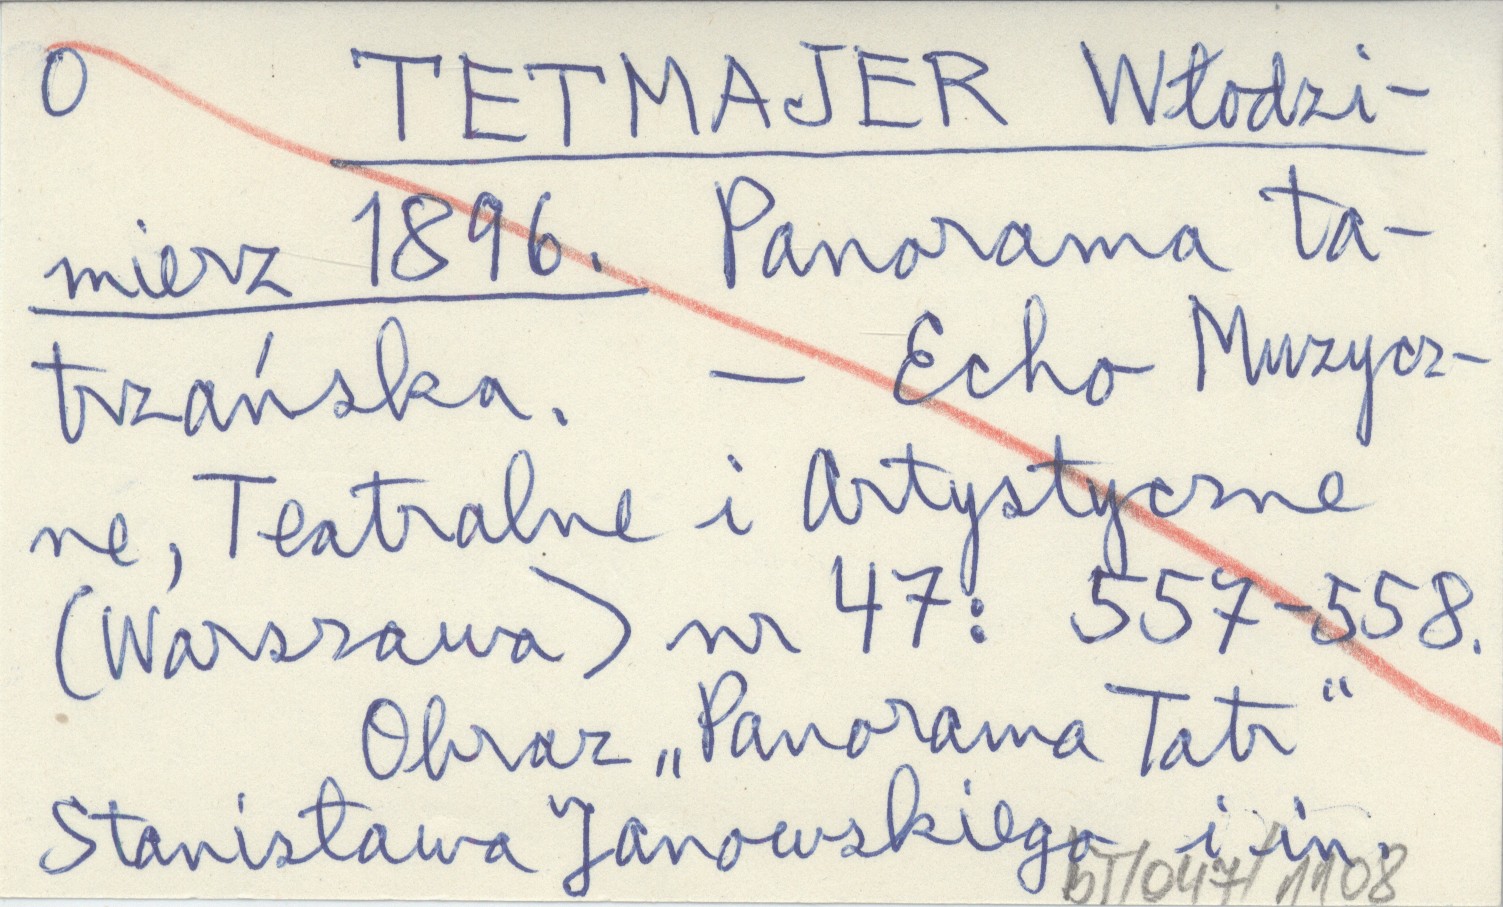 O TETMAJER Włodzi-
mierz 1896. Panorama ta-
trzańska. — Echo Muzycz-
ne, Teatralne i Artystyczne
(Warszawa) nr 47: 557-558.
Obraz „Panorama Tatr“
Stanisława Janowskiego i in.
bT/047/1108